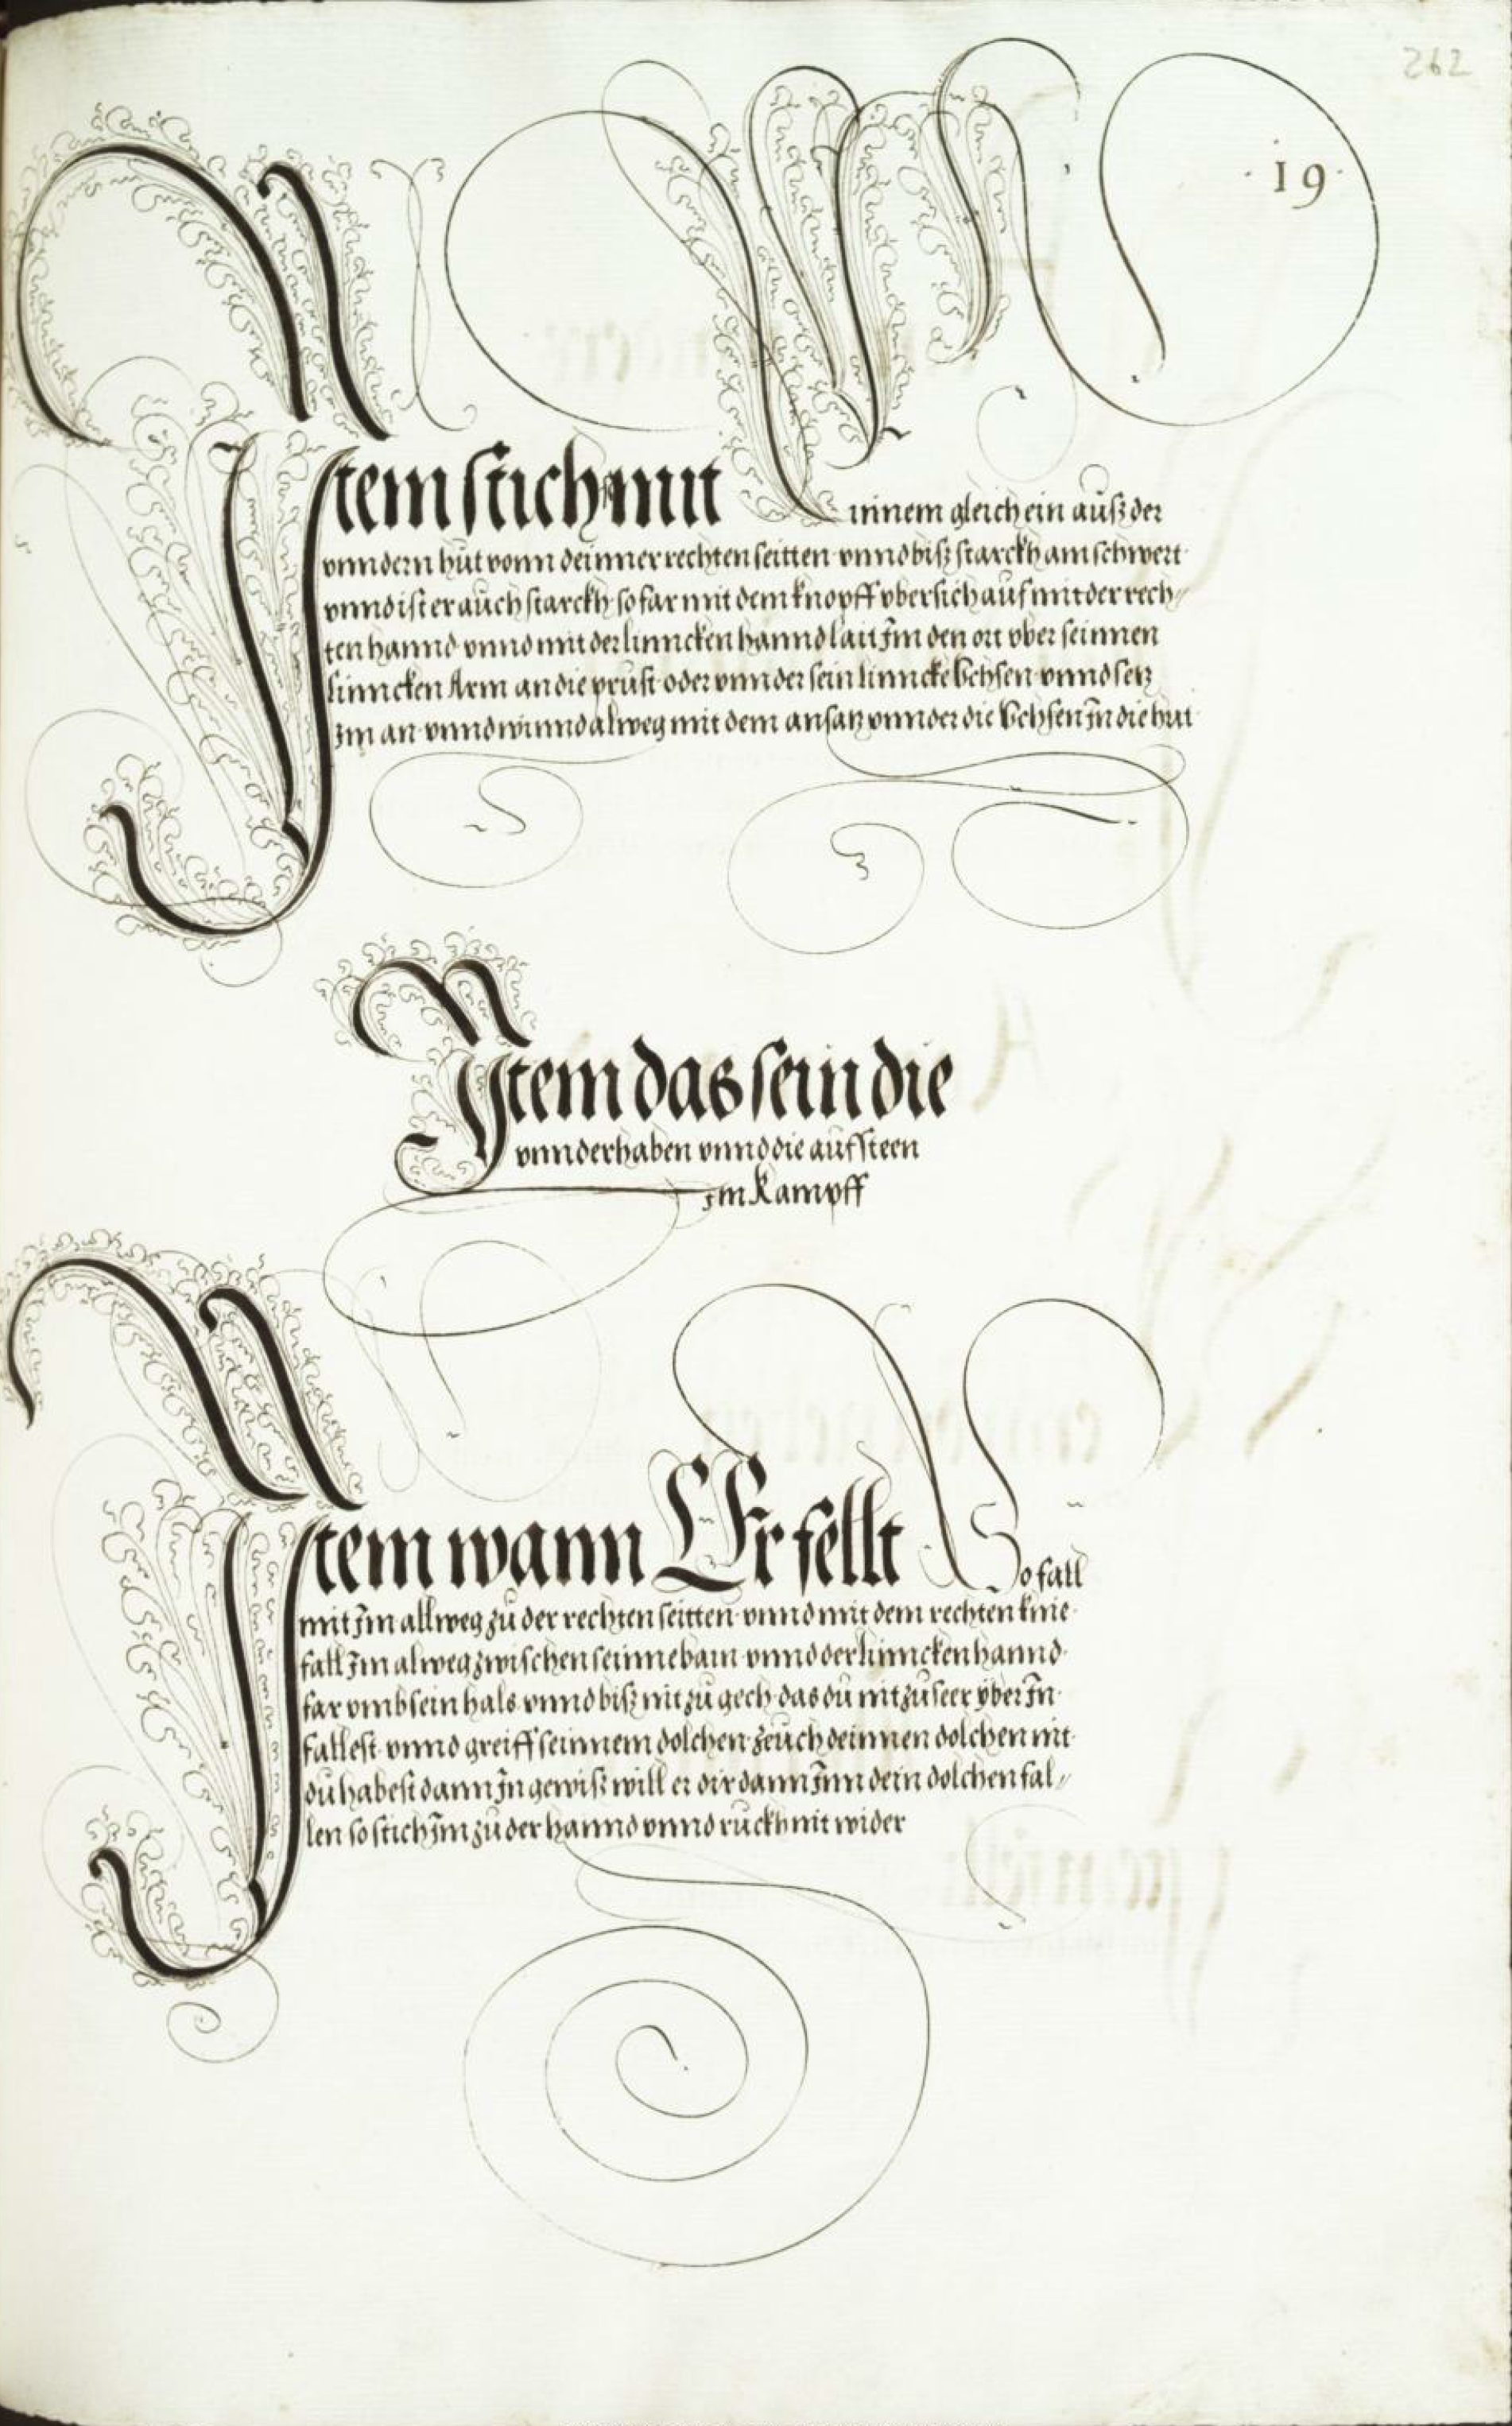 262
·19·
Item stich mit Im innem gleich ein auß der
vnndern hut vonn deinner rechten seitten vnnd biß starckh am schwert
vnnd ist er auch starckh so far mit dem knopff vbersich auf mit der rech//
ten hannd vnnd mit der linncken hannd lait Im den ort vber seinnen
linncken Arm an die prust oder vnnder sein linncke Vchsen vnnd setz
Im an vnnd winnd alweg mit dem ansatz vnnder die Vchsen In die hut
Item das sein die
vnnderhaben vnnd die aufsteen
Im Kampff
Item wann Er fellt So fall
mit Im allweg zu der rechten seitten vnnd mit dem rechten knie
fall Im alweg zwischen seinne bain vnnd der linncken hannd
far vmb sein hals vnnd biß nit zu gech das du nit zu seer yber In
fallest vnnd greiff seinnem dolchen zeuch deinnen dolchen nit
du habest dann In gewiß will er dir dann Inn dein dolchen fal//
len so stich Im zu der hannd vnnd ruckh nit wider